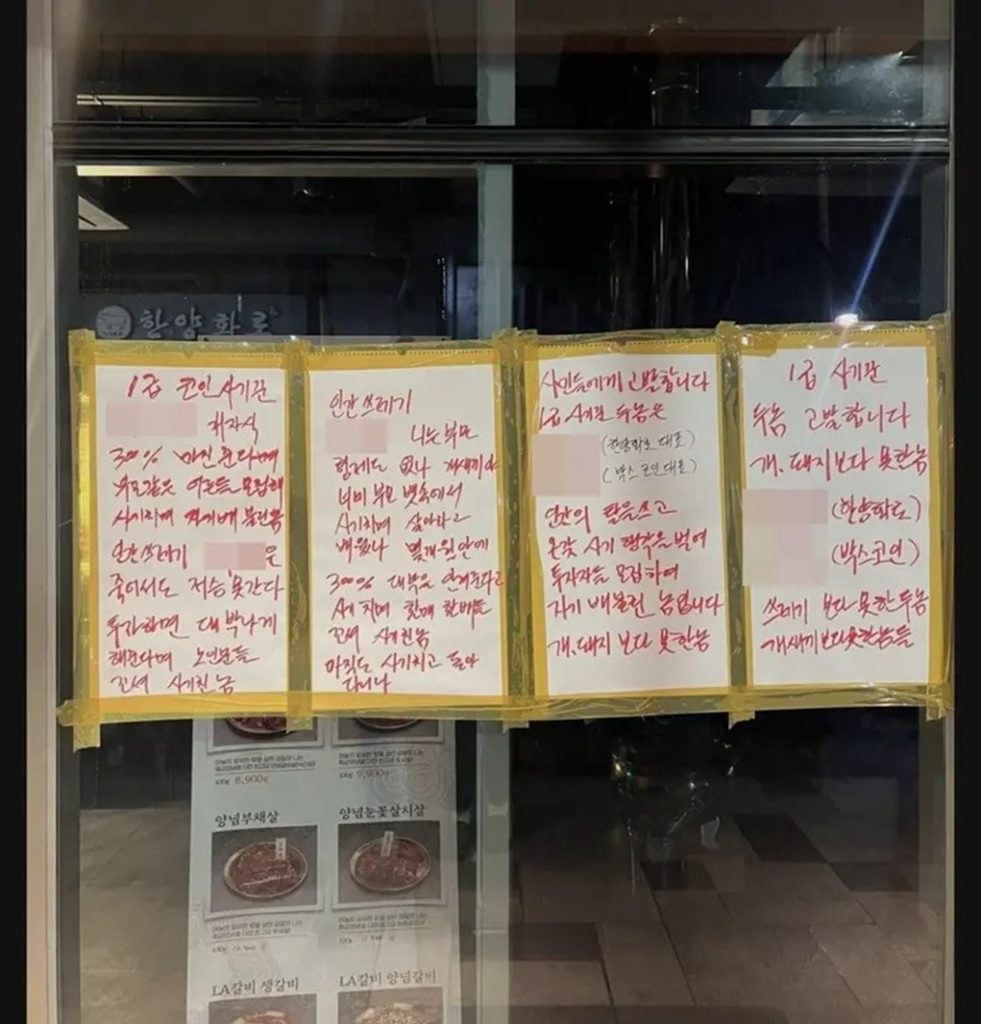 한양화로
1급 코인사기꾼
처자식
300% 마진준다며
부모같은 어른들 모집해
사기치며 자기배 불린놈
인간쓰레기 은
죽어서도 저승 못간다
투자하면 대박나게
해준다며 노인분들
꼬셔 사기친 놈
인간쓰레기
너는 부모
형제도 없나 개새끼야
너미 부모 뱃속에서
사기치며 살아라고
배웠나 몇개월안에
300% 대박을 안겨준다고
사기치며 할매 할배들
꼬셔 사기친놈
아직도 사기치고 돌아
다니나
시민들에게 고발합니다
1급 사기꾼 두놈은
(한양화로 대표)
(박스코인대표)
인간의 탈을쓰고
온갖 사기 행각을 벌여
투자자들 모집하여
자기 배불린 놈입니다
개.돼지 보다 못한놈
1급 사기꾼
두놈 고발합니다
개.돼지보다 못한놈
(한양화로)
(박스코인)
쓰레기 보다 못한 두놈
개새끼보다못한놈들
100g 8,900원
100g 9,900원
양념부채살
양념눈꽃살치살
LA갈비 생갈비
LA갈비 양념갈비